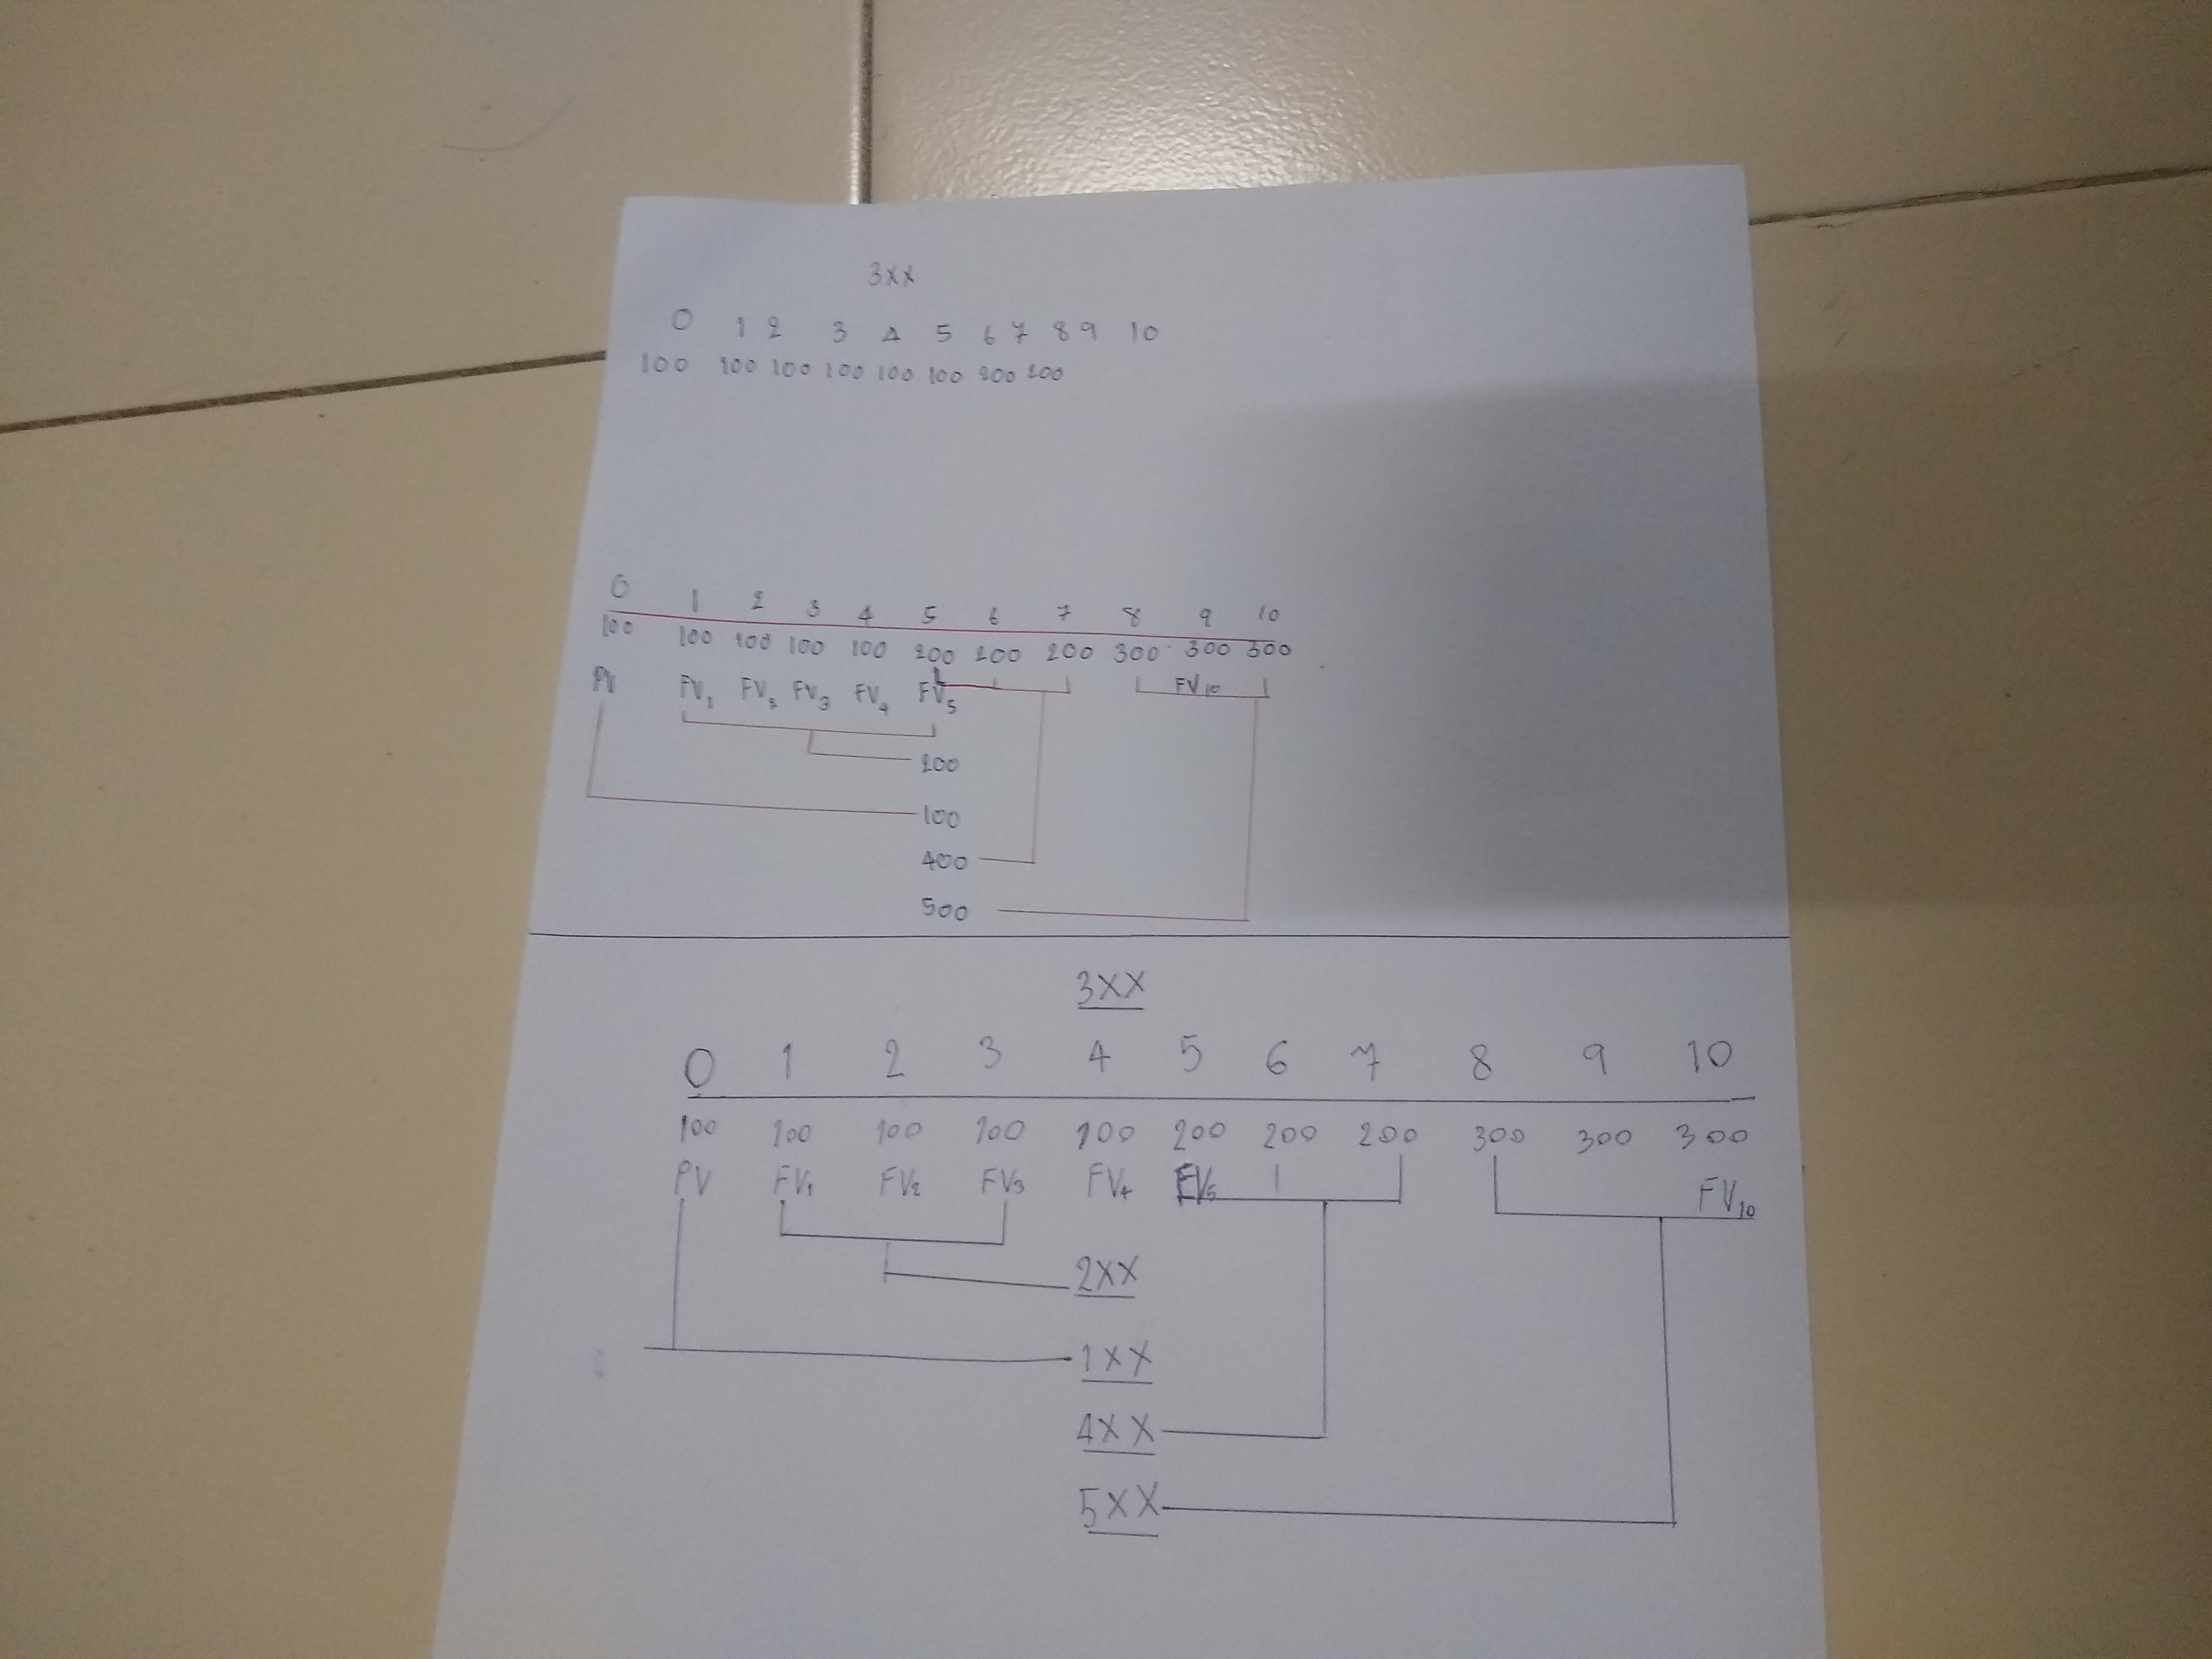 3xx
0 1 2 3 4 5 6 7 8 9 10
100 100 100 100 100 100 200 200
0 1 2 3 4 5 6 7 8 9 10
100 100 100 100 100 200 200 200 300 300 300
PV FV1 FV2 FV3 FV4 FV5 FV10
200
100
400
500
3XX
0 1 2 3 4 5 6 7 8 9 10
100 100 100 100 100 200 200 200 300 300 300
PV FV1 FV2 FV3 FV4 FV5 FV10
2XX
1XX
4XX
5XX